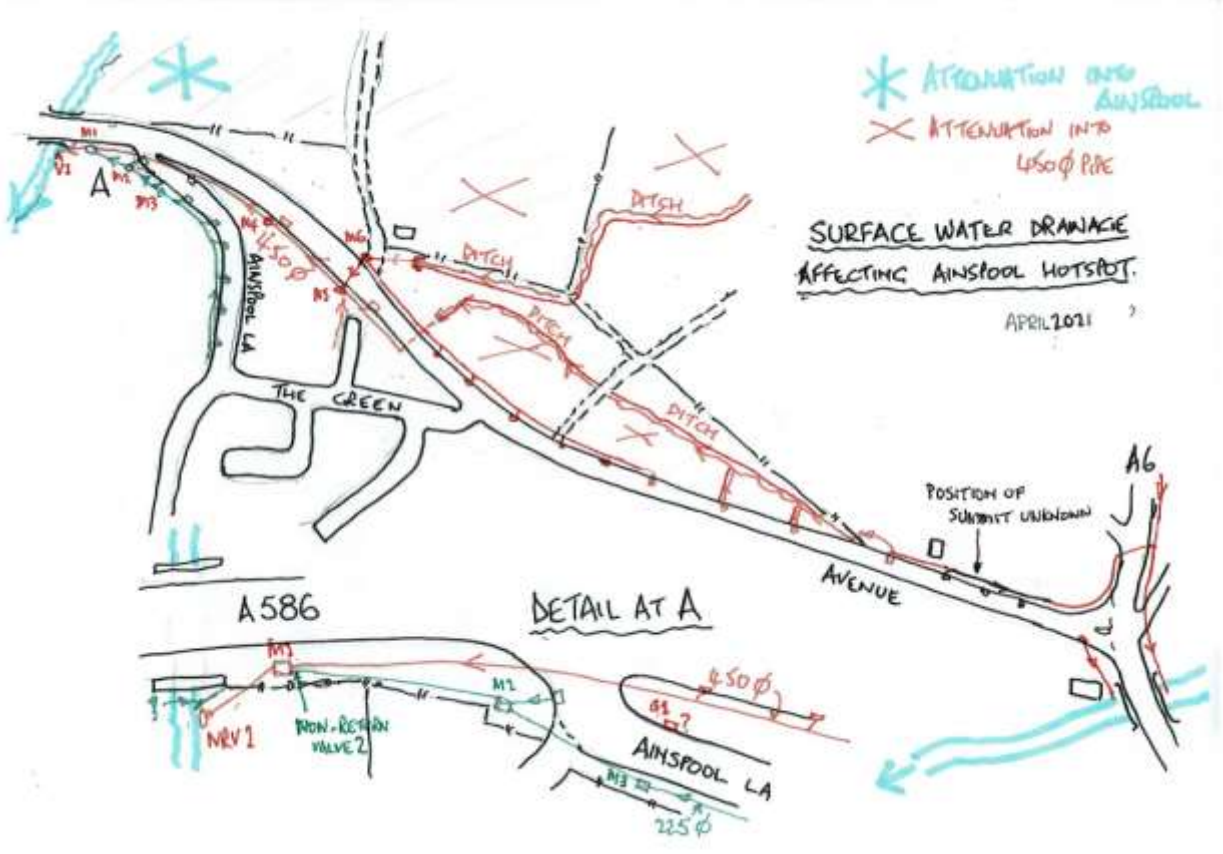 ATTENUATION INTO
AINSPOOL
ATTENUATION INTO
450Ø PIPE
SURFACE WATER DRAINAGE
AFFECTING AINSPOOL HOTSPOT.
APRIL 2021
M1
V1
A
M2
M3
M4
450Ø
M5
M6
AINSPOOL LA
DITCH
DITCH
DITCH
DITCH
THE GREEN
A6
POSITION OF
SUMMIT UNKNOWN
AVENUE
A586
DETAIL AT A
M1
M2
NRV1
NON-RETURN
VALVE 2
450Ø
G1
?
AINSPOOL LA
M3
225Ø